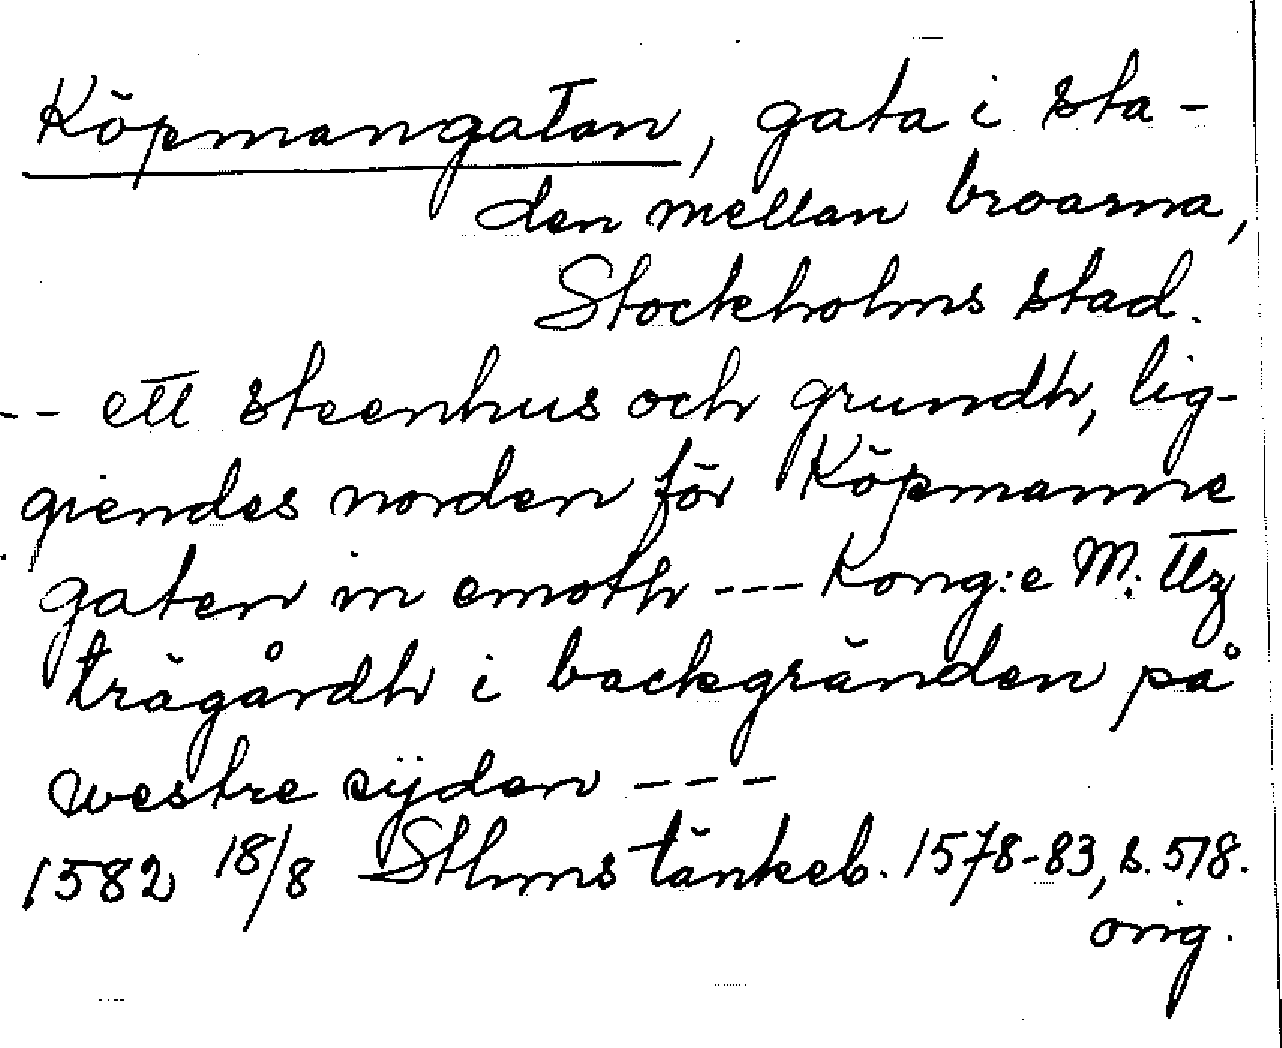 Köpmangatan, gata i sta-
den mellan broarna,
Stockholms stad.
-- ett steenhus och grundh, lig-
giendes norden för Köpmanne
gaten in emoth --- Kong:e M:ttz
trägårdh i backgränden på
westre sijden ---
1582 18/8 Sthms tänkeb. 1578-83, s. 518.
orig.